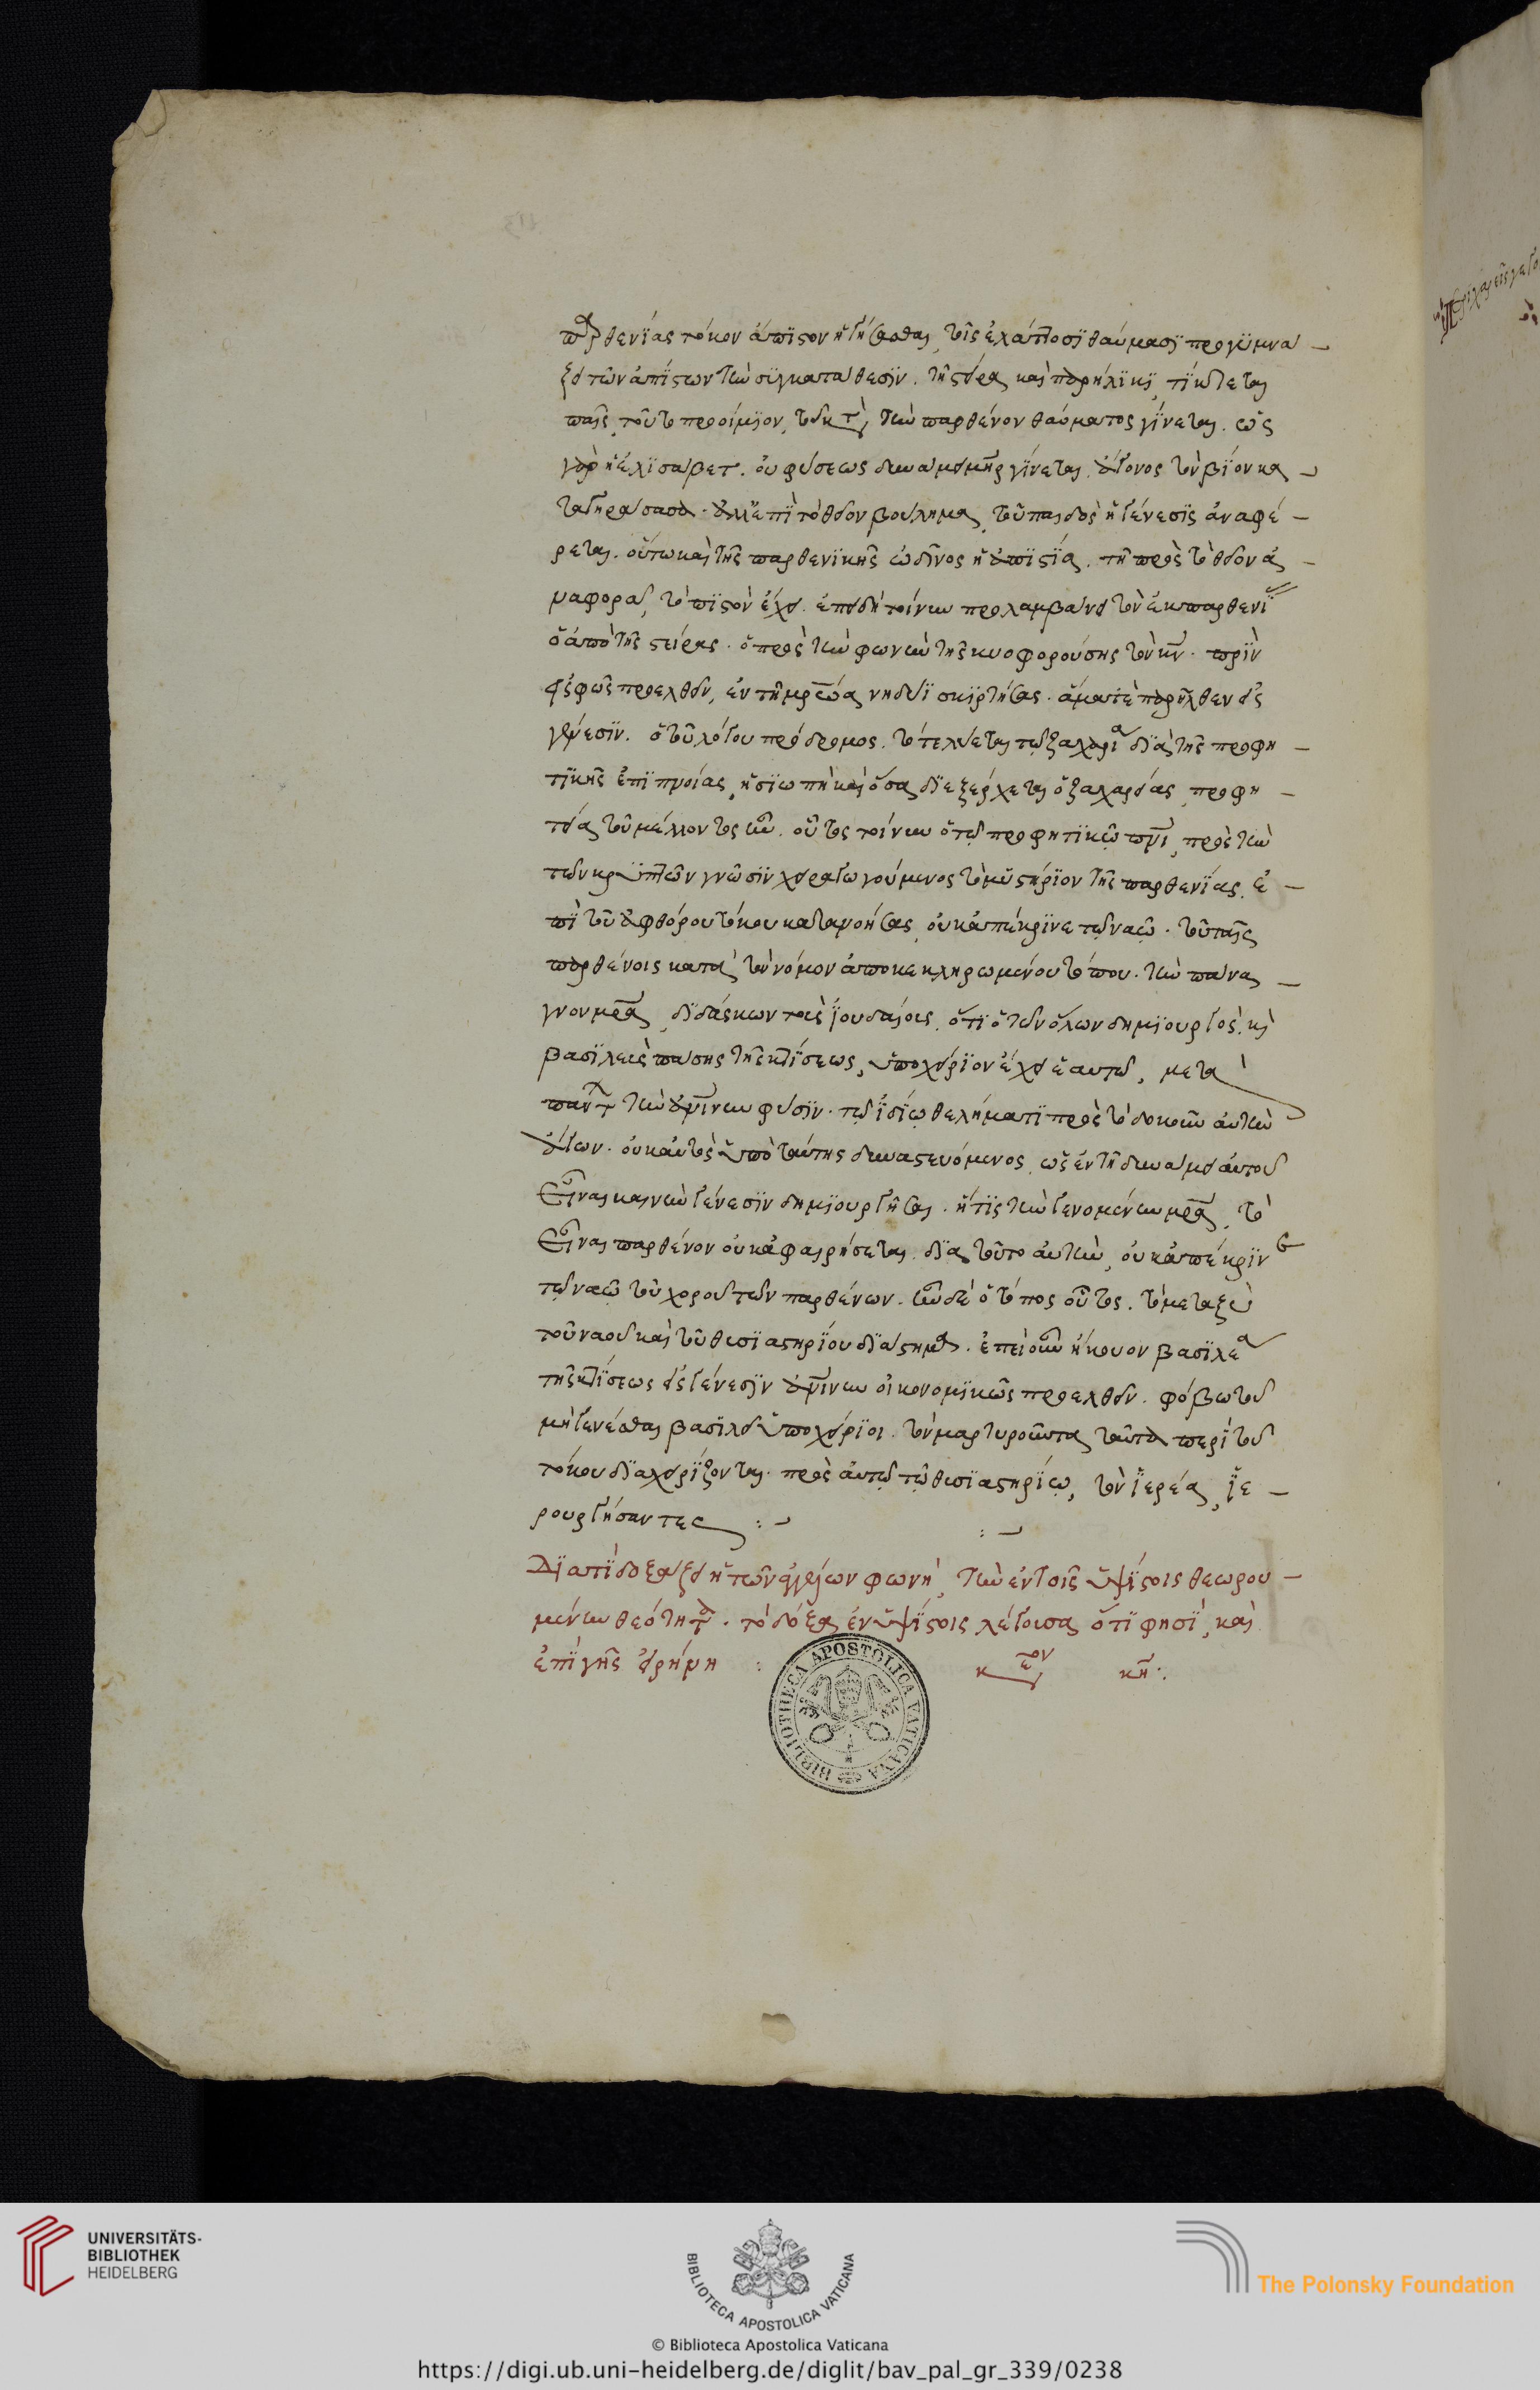 παρθενίας τόκον ἄπιστον ἡγήσασθαι, τοῖς ἐλάττοσι θαύμασι προγυμνά-
ζει τῶν ἀπίστων τὴν συγκατάθεσιν. τῇ στείρᾳ καὶ παρήλικι, τίκτεται
παῖς, τοῦτο προοίμιον, τοῦ κατὰ τὴν παρθένον θαύματος γίνεται. ὡς
γὰρ ἡ ἐλισάβετ. οὐ φύσεως δυνάμει μήτηρ γίνεται. ἄγονος τὸν βίον κα-
ταγηράσασα. ἀλλ' ἐπὶ τὸ θεῖον βούλημα, τοῦ παιδὸς ἡ γένεσις ἀναφέ-
ρεται. οὕτω καὶ τῆς παρθενικῆς ὠδῖνος ἡ ἀπιστία. τῇ πρὸς τὸ θεῖον ἀ-
ναφορᾷ, τὸ πιστὸν ἔχει. ἐπειδὴ τοίνυν προλαμβάνει τὸν ἐκ παρθενίας
ὁ ἀπὸ τῆς στείρας. ὁ πρὸς τὴν φωνὴν τῆς κυοφορούσης τὸν κν. πρὶν
εἰς φῶς προελθεῖν, ἐν τῇ μρώα νηδύϊ σκιρτήσας. ἅμα τὲ παρῆλθεν εἰς
γένεσιν. ὁ τοῦ λόγου πρόδρομος. τότε λύεται τῷ ζαχαρία διὰ τῆς προφη-
τικῆς ἐπιπνοίας, ἡ σιωπὴ καὶ ὅσα διεξέρχεται ὁ ζαχαρίας, προφη-
τεία τοῦ μέλλοντος ἦν. οὗτος τοίνυν ὁ τῷ προφητικῷ πνι, πρὸς τὴν
τῶν κρυπτῶν γνῶσιν χειραγωγούμενος τὸ μυστήριον τῆς παρθενίας, ἐ-
πὶ τοῦ ἀφθόρου τόκου κατανοήσας, οὐκ ἀπέκρινε τῷ ναῷ. τοῦ ταῖς
παρθένοις κατὰ τὸν νόμον ἀποκεκληρωμένου τόπου. τὴν πάνα-
γνον μρα, διδάσκων τοὺς ἰουδαίους, ὅτι ὁ τῶν ὅλων δημιουργὸς κὶ
βασιλεὺς πάσης τῆς κτίσεως, ὑποχείριον ἔχει ἑαυτῷ, μετὰ
πάντων τὴν ἀνίνην φύσιν. τῷ ἰδίῳ θελήματι πρὸς τὸ δοκοῦν αὐτὴν
ἄγων. οὐκ αὐτὸς ὑπὸ ταύτης δυναστευόμενος, ὡς ἐν τῇ δυνάμει αὐτοῦ
εἶναι καινὴν γένεσιν δημιουργῆσαι. ἥτις τὴν γενομένην μρα, τὸ
εἶναι παρθένον οὐκ ἀφαιρήσεται. διὰ τοῦτο αὐτὴν, οὐκ ἀπέκρινε
τῷ ναῷ τοῦ χοροῦ τῶν παρθένων. ἦν δὲ ὁ τόπος οὗτος. τὸ μεταξὺ
τοῦ ναοῦ καὶ τοῦ θυσιαστηρίου διάστημα. ἐπεὶ οὖν ἤκουον βασιλέα
τῆς κτίσεως εἰς γένεσιν ἀνίνην οἰκονομικῶς προελθεῖν. φόβω τοῦ
μὴ γενέσθαι βασιλεῖ ὑποχείριοι. τὸν μαρτυροῦντα ταῦτα περὶ τοῦ
τόκου διαχειρίζονται. πρὸς αὐτῷ τῷ θυσιαστηρίῳ, τὸν ἱερέα, ἱε-
ρουργήσαντες :- :-
Διατί δοξάζει ἡ τῶν ἀγγέλων φωνὴ, τὴν ἐν τοῖς ὑψίστοις θεωρου-
μένην θεότητα. τὸ δόξα ἐν ὑψίστοις λέγουσα ὅτι φησὶ, καὶ
ἐπὶ γῆς εἰρήνη : κείμενον κη:
BIBLIOTHECA APOSTOLICA VATICANA
UNIVERSITÄTS-
BIBLIOTHEK
HEIDELBERG
BIBLIOTECA APOSTOLICA VATICANA
The Polonsky Foundation
© Biblioteca Apostolica Vaticana
https://digi.ub.uni-heidelberg.de/diglit/bav_pal_gr_339/0238